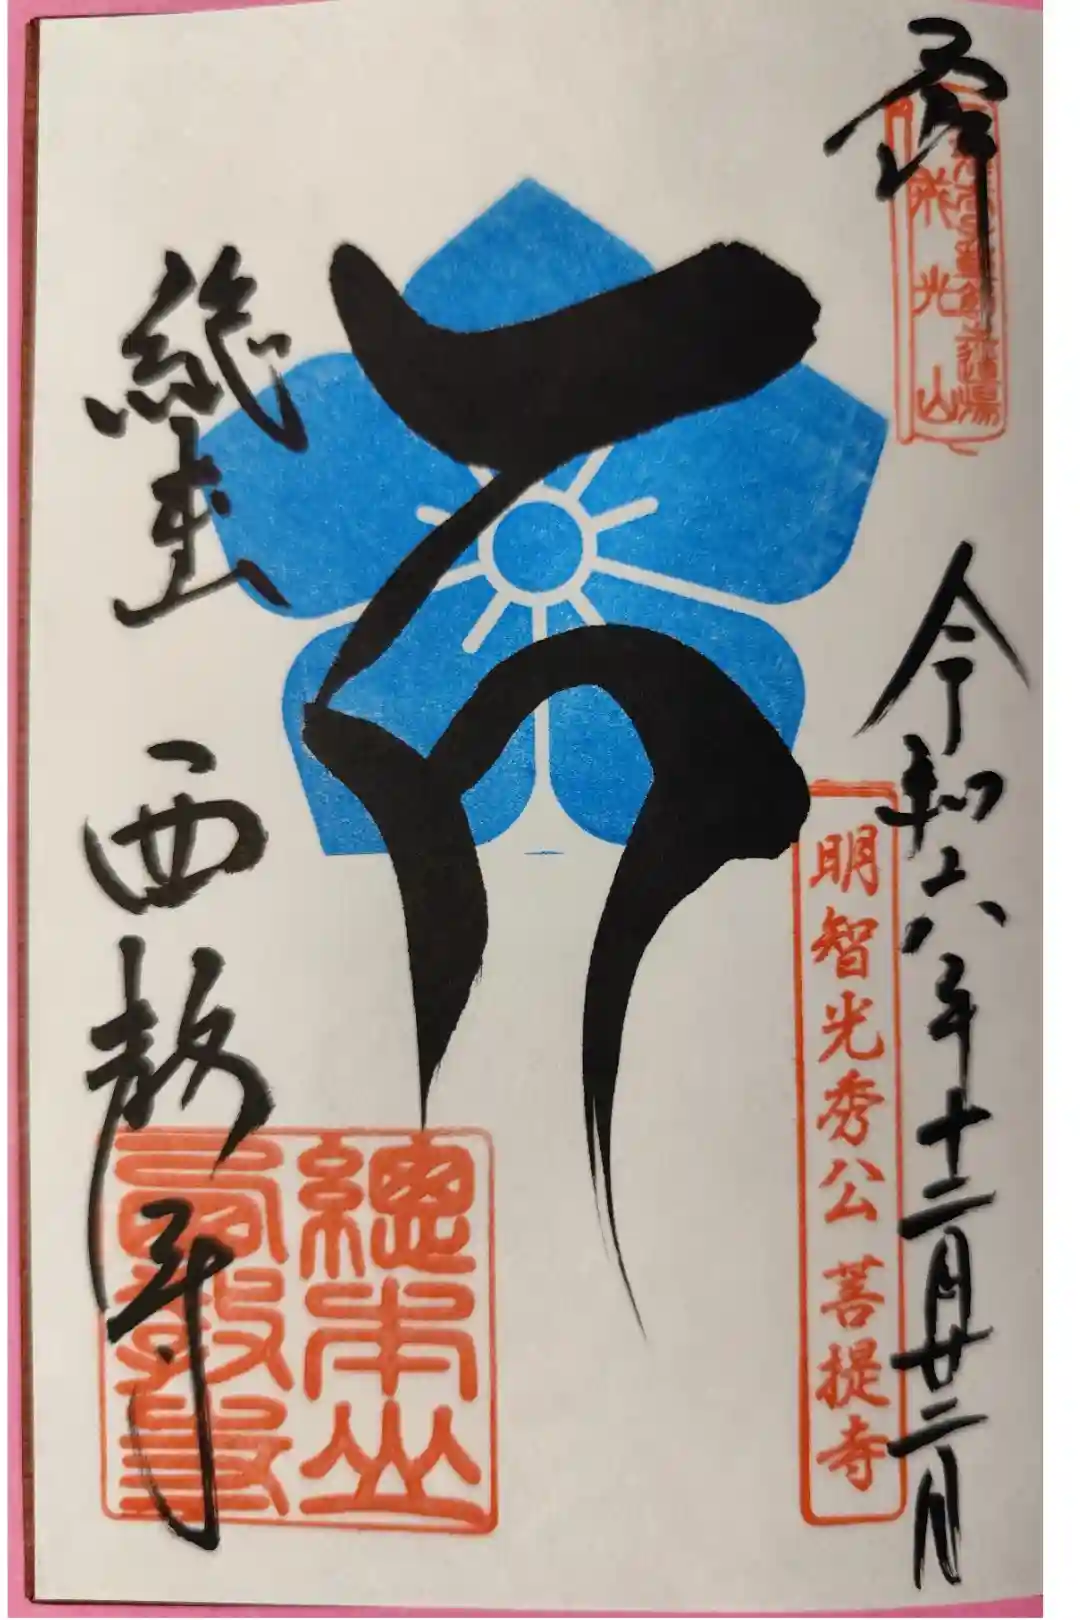 令和六年十二月廿二日
戒光山
明智光秀公 菩提寺
總本山
西教寺
總本山
西教寺